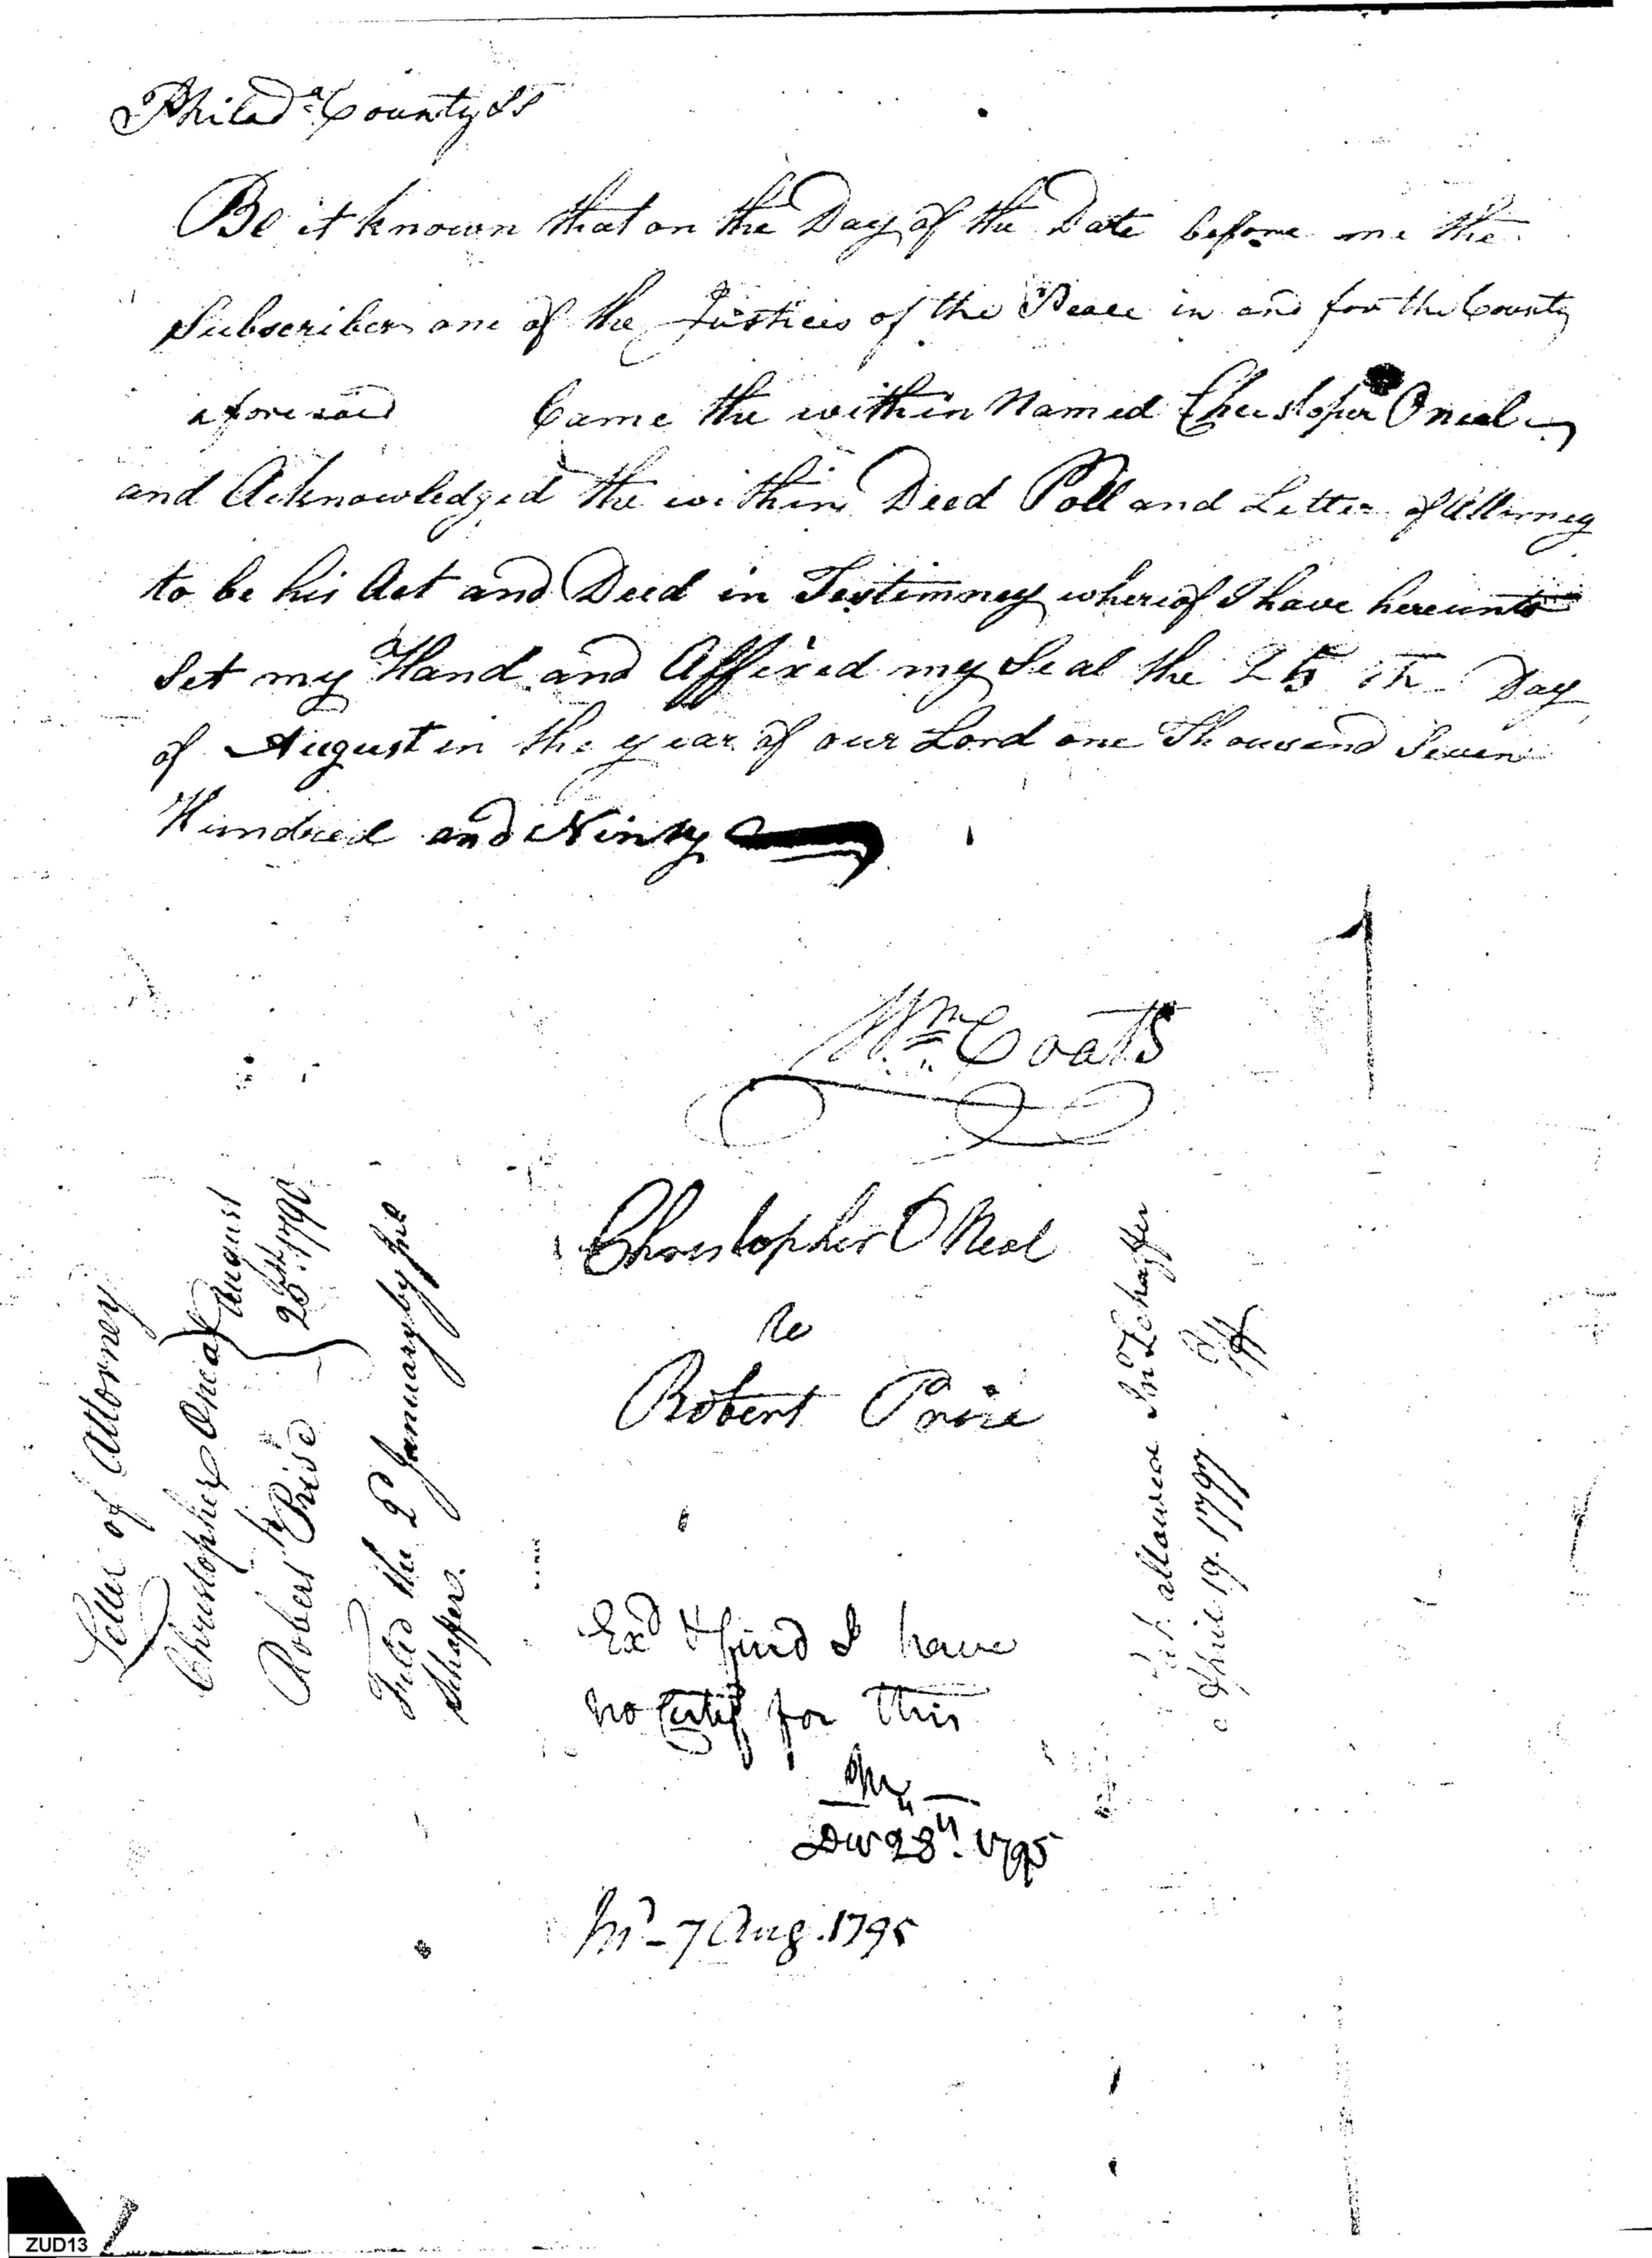 Philad.a County SS
Be it known that on the Day of the Date before me the
Subscriber one of the Justices of the Peace in and for the County
aforesaid Came the within Named Christopher Oneal
and Acknowledged the within Deed Poll and Letter of Attorney
to be his Act and Deed in Testimoney whereof I have hereunto
Set my Hand and Affixed my Seal the 25 Th Day
of August in the year of our Lord one Thousand Seven
Hundred and Ninty
Wm. Coats
Letter of Attorney
Christopher Oneal
to
Robert Prise
August
1790
Filed the 2d January by
Schaffer.
Christopher ONeal
to
Robert Price
Exd & find I have
no Certif for this
28th. 1795
7 Aug. 1795
allowed Jno Schaffer
April 19. 1797
ZUD13